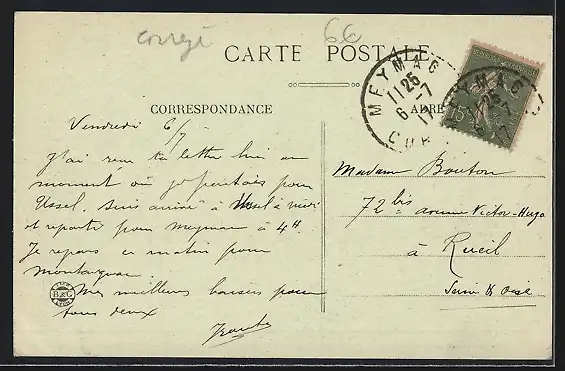 corrigé
66
CARTE POSTALE
CORRESPONDANCE
ADRE
MEYMAC
11 25
6 - 7
17
COR
MEYMAC
25
- 7
17
15
Vendredi 6/7
J'ai reçu ta lettre hier au
moment où je partais pour
Ussel. Suis arrivé à Ussel à midi
et repartir pour Meymac à 4H.
Je repars ce matin pour
B&G
Mes meilleurs baisers pour
tous deux
Madame Bouton
72 bis avenue Victor-Hugo
à Rueil
Seine & Oise